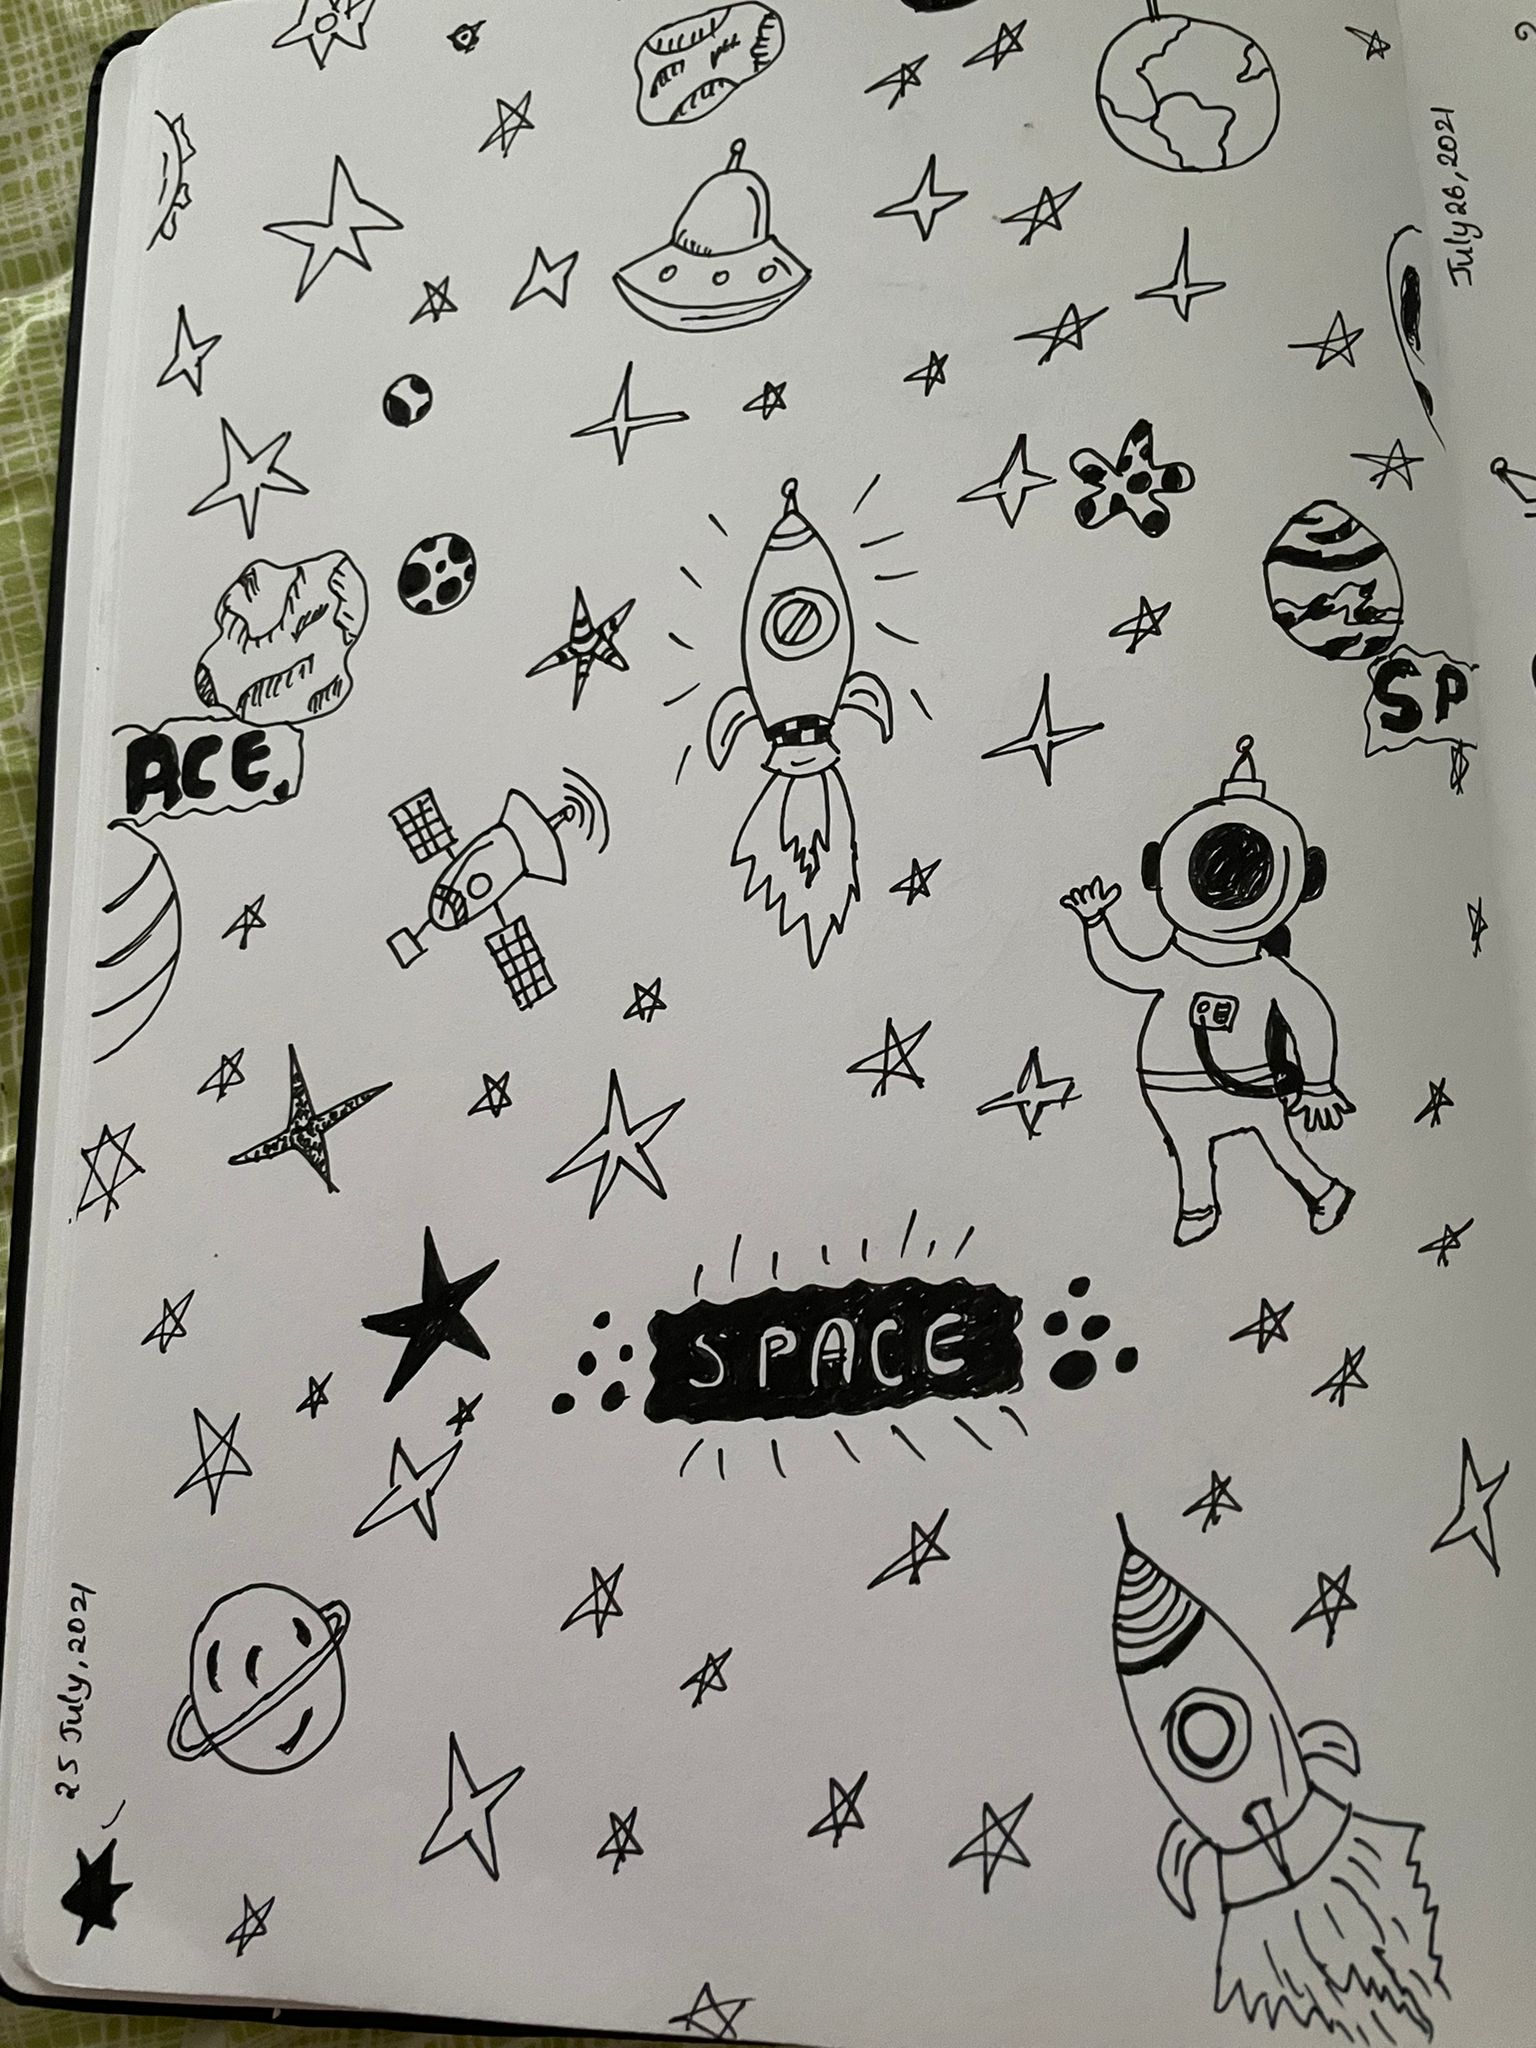 July 26, 2021
SP
ACE
SPACE
25 July, 2021